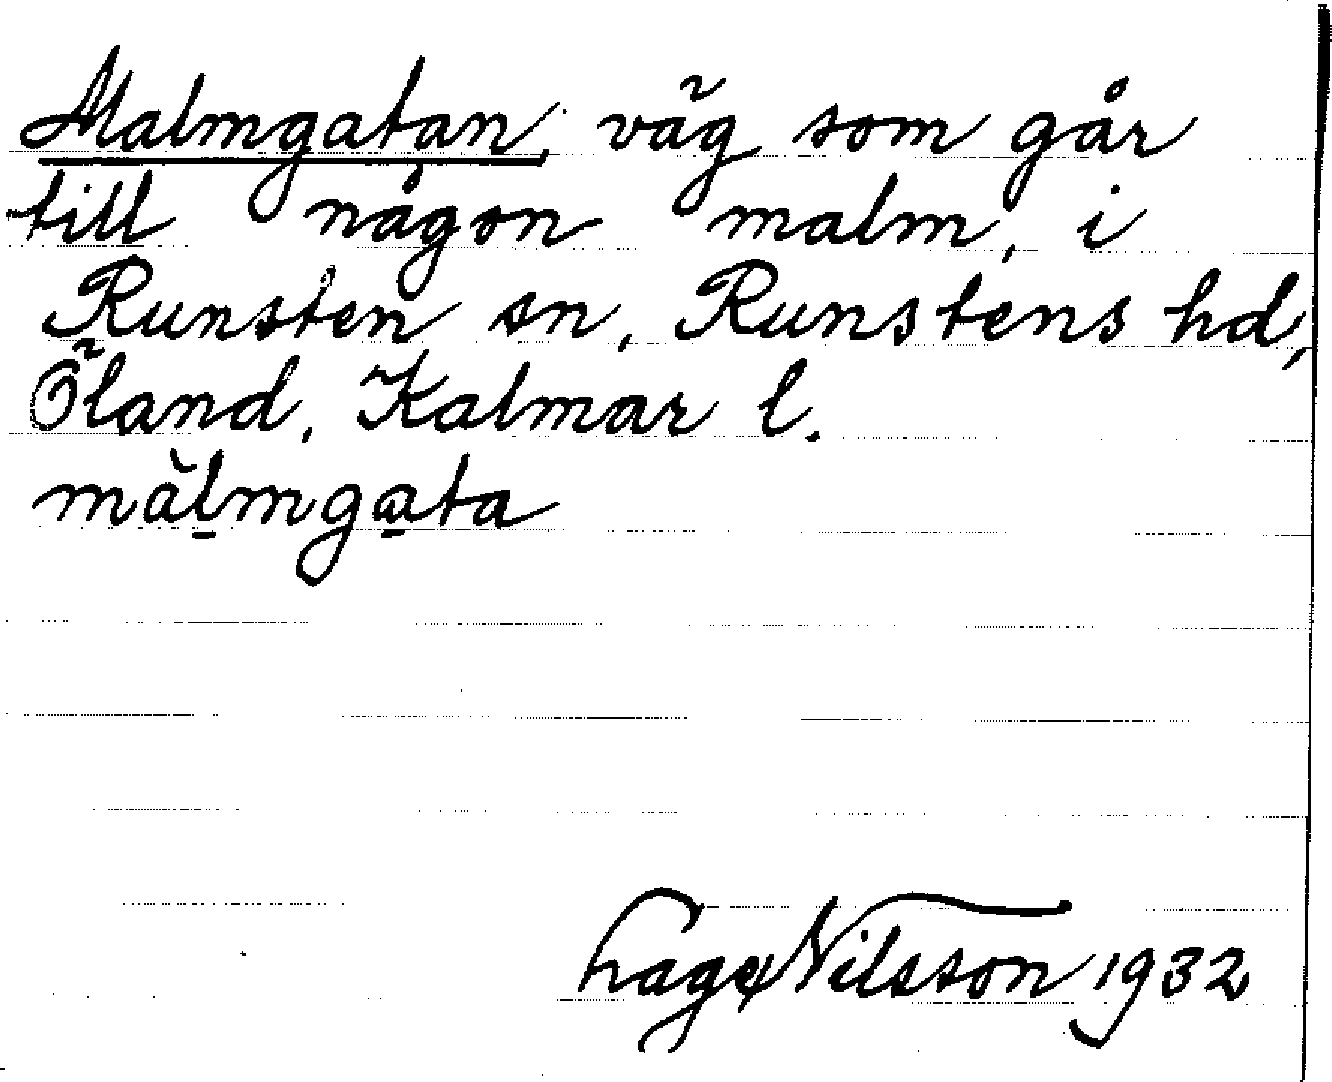 Malmgatan, väg som går
till någon malm, i
Runsten sn, Runstens hd,
Öland, Kalmar l.
màl̠mga̠ta
Lage Nilsson 1932